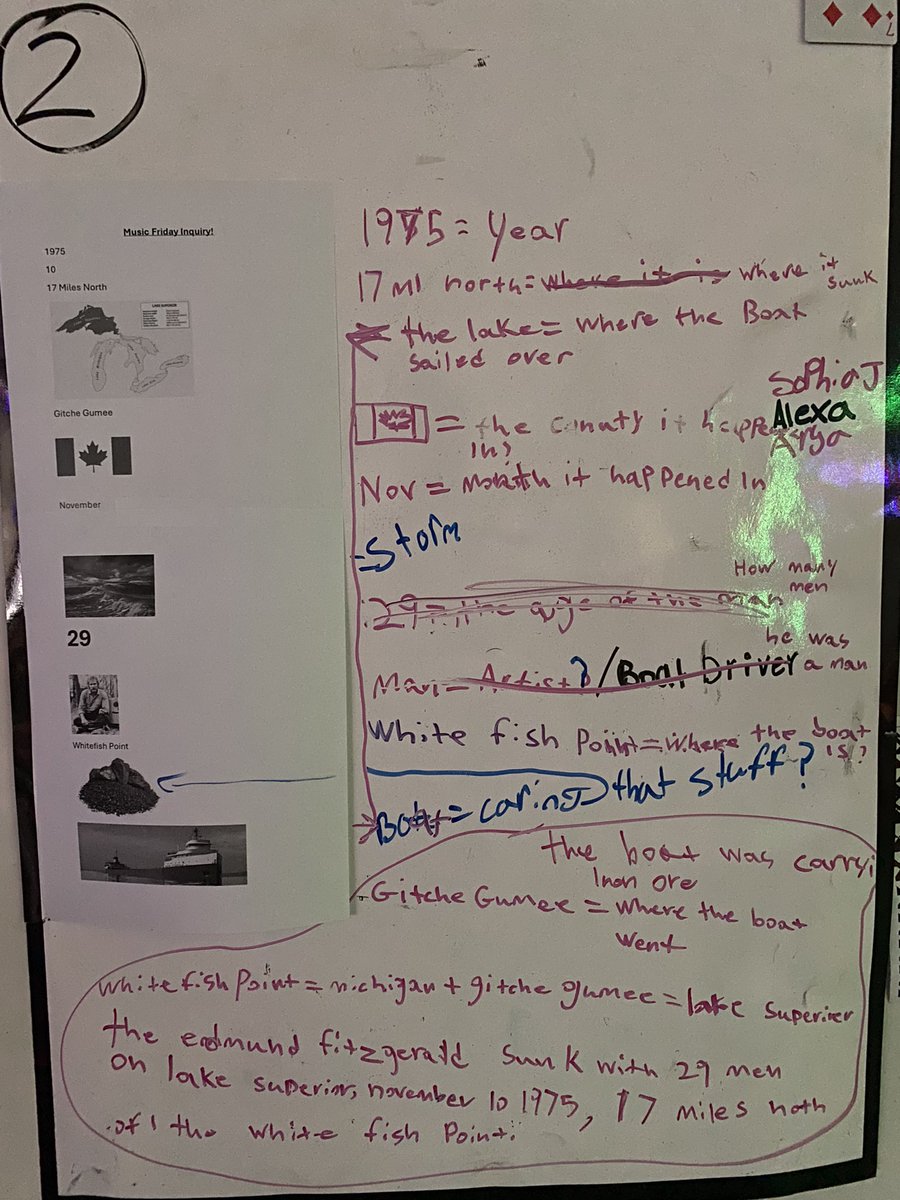 2
7
Music Friday Inquiry!
1975
10
17 Miles North
LAKE SUPERIOR
Gitche Gumee
November
29
Whitefish Point
1975 = Year
17 mi north = where it is where it
sunk
the lake = where the Boat
sailed over
Sophia J
Alexa
Arya
= the counnty it happened
in?
Nov = month it happened in
- Storm
How many
men
29 = the age of the man
he was
a man
Man = Artist? / Boat Driver
White fish Point = where the boat
is?
Boat = caring that stuff?
the boat was carryi
Iron ore
- Gitche Gumee = where the boat
went
white fish Point = michigan + gitche gumee = lake superirer
the edmund fitzgerald sunk with 29 men
on lake superior, november 10 1975, 17 miles noth
of the white fish Point.